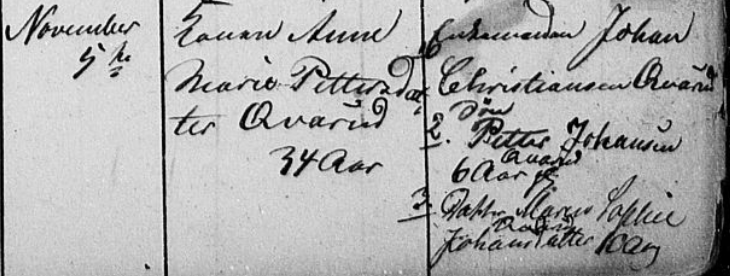 November
5te
Konen Anne
Marie Pettersdat
ter Qvarud
34 Aar
Enkemanden Johan
Christiansen Qvarud
Søn
2. Petter Johansen
Qvarud
6 Aar gl
3. Datter Maren Sophie
Qvarud
Johansdatter